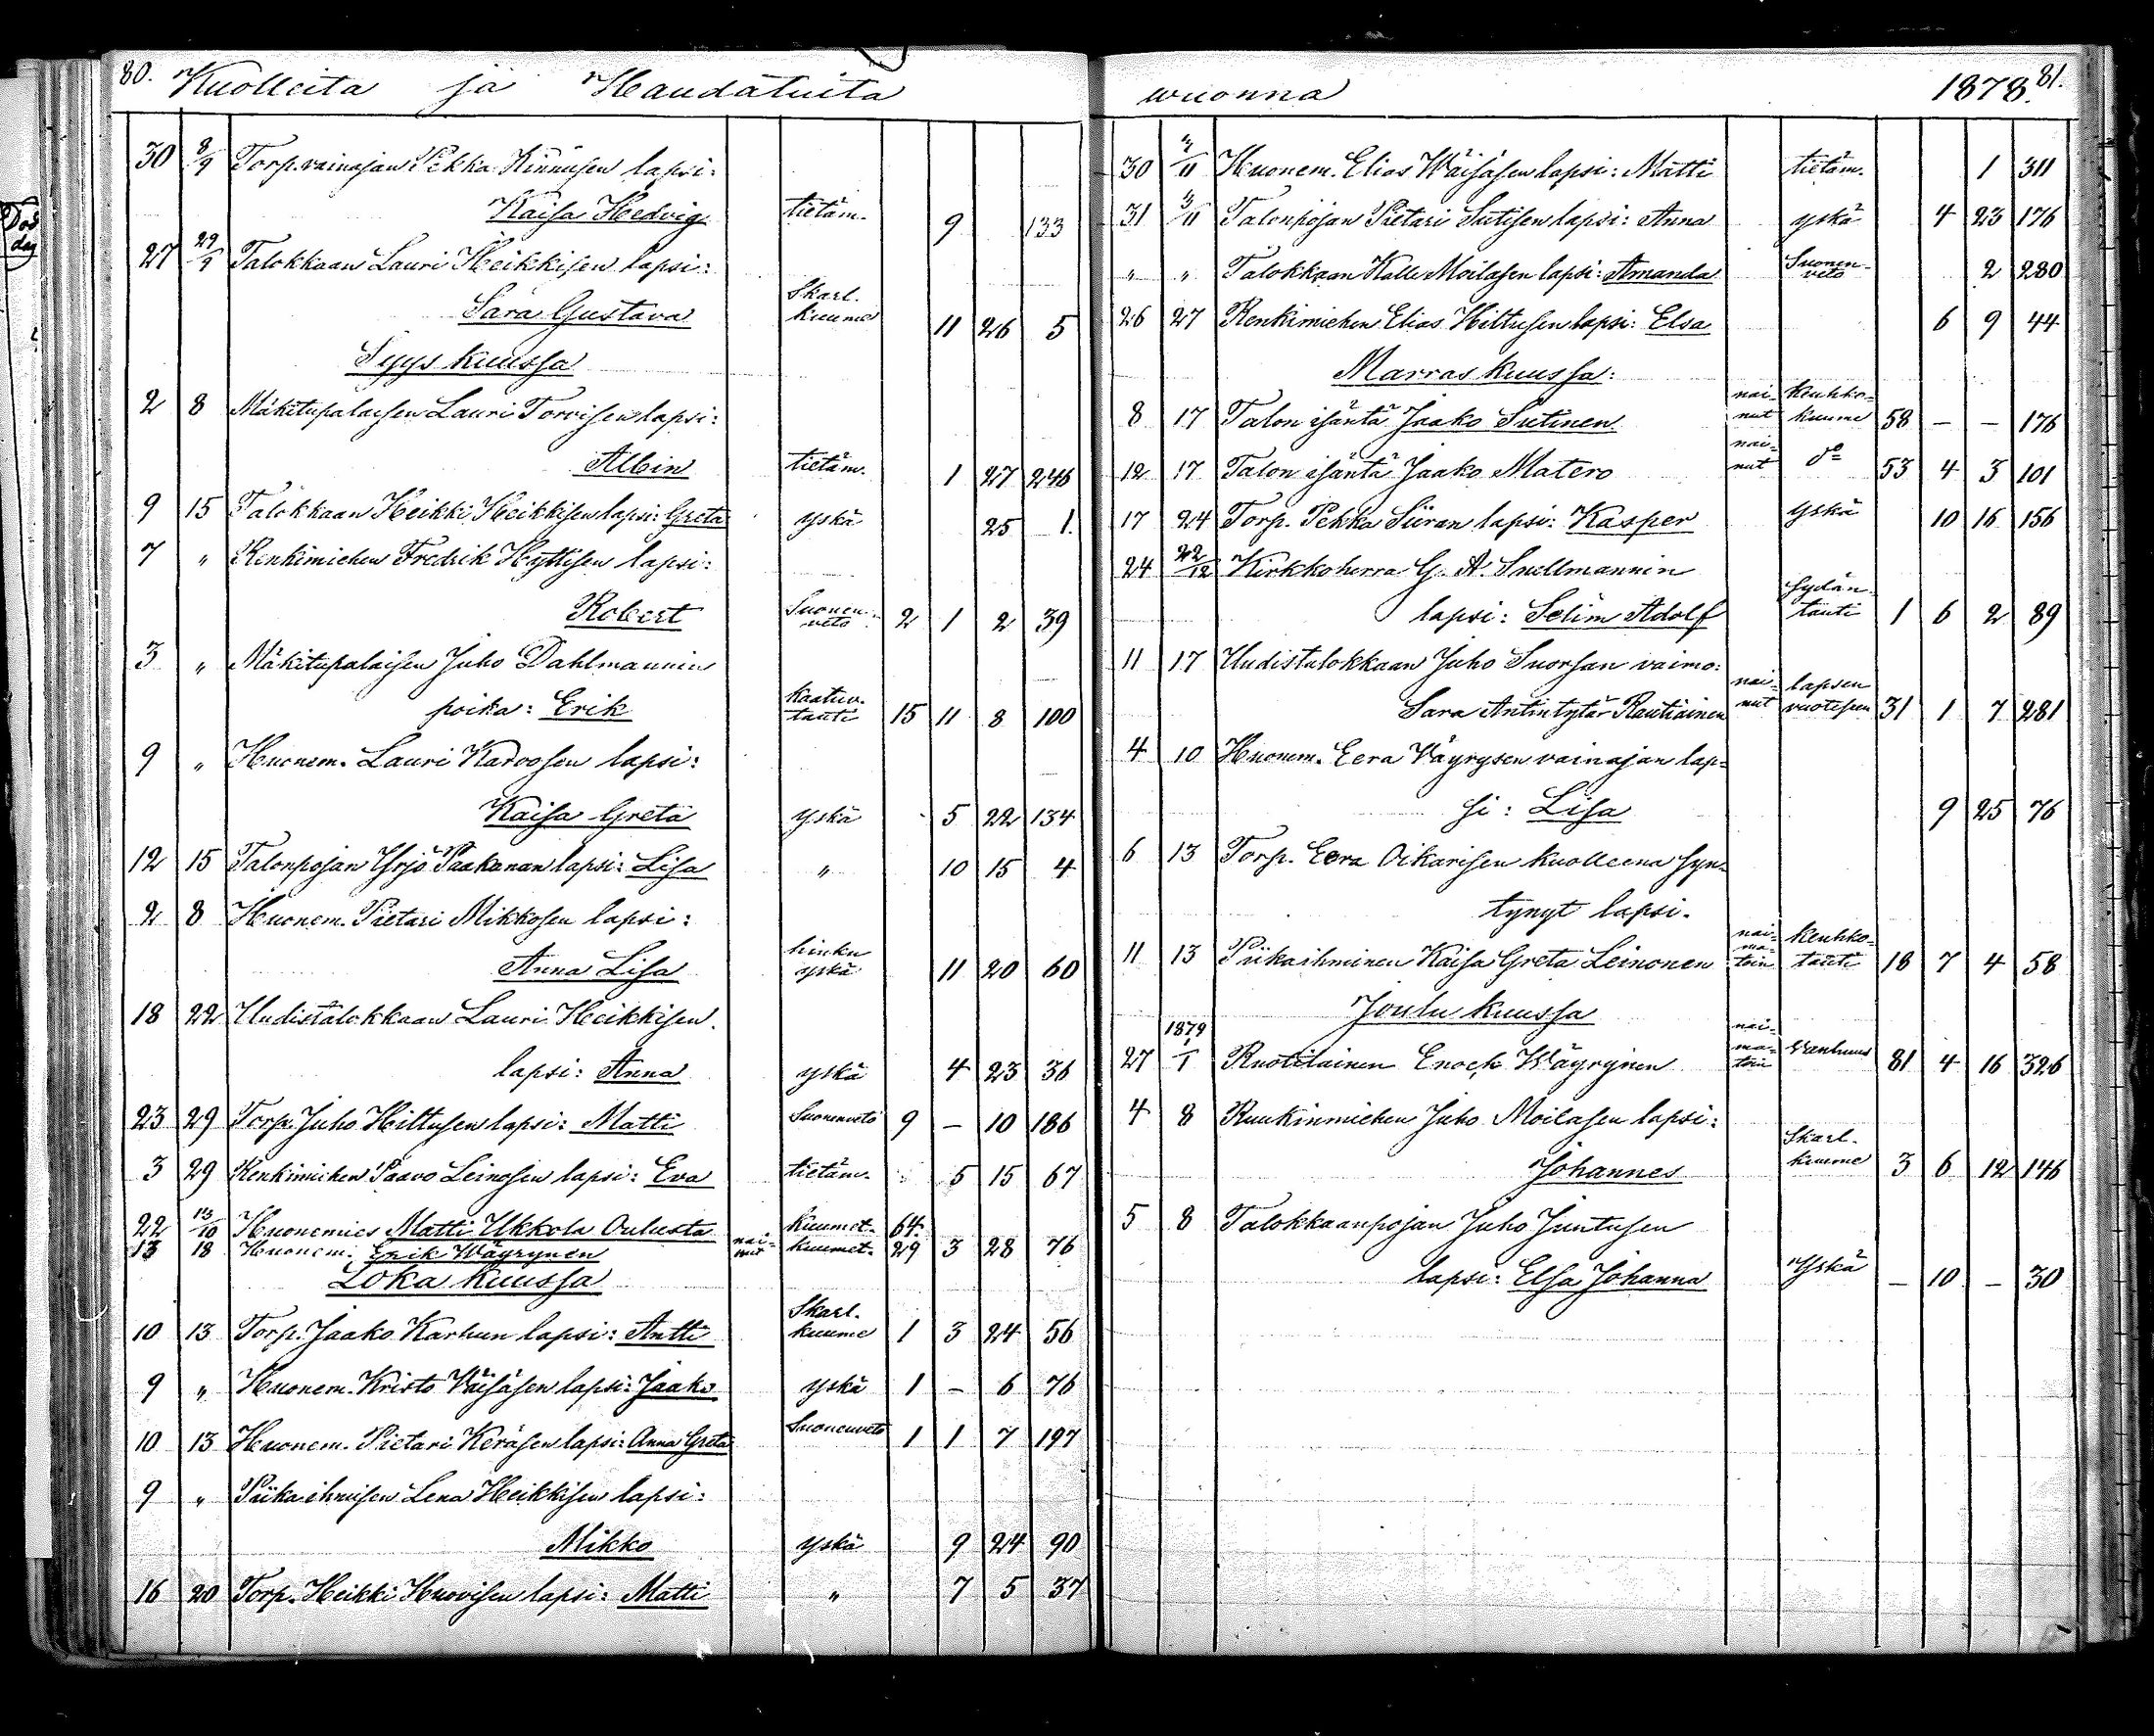 80. Kuolleita ja Haudatuita
30 8/9 Torp. vainajan Pekka Kinnusen lapsi:
Kaisa Hedvig tietäm. 9 133
27 29/9 Talokkaan Lauri Heikkisen lapsi:
Sara Gustava Skarl. kuume 11 26 5
Syyskuussa
2 8 Mäkitupalaisen Lauri Torvisen lapsi:
Albin tietäm. 1 27 246
9 15 Talokkaan Heikki Heikkisen lapsi: Greta yskä 25 1.
7 " Renkimiehen Fredrik Hyttisen lapsi:
Robert Suonenveto 2 1 2 39
3 " Mäkitupalaisen Juho Dahlmannin
poika: Erik kaatuv. tauti 15 11 8 100
9 " Huonem. Lauri Karvosen lapsi:
Kaisa Greta yskä 5 22 134
12 15 Talonpojan Yrjö Paakanan lapsi: Lisa " 10 15 4
2 8 Huonem. Pietari Mikkosen lapsi:
Anna Lisa hinku yskä 11 20 60
18 22 Uudistalokkaan Lauri Heikkisen
lapsi: Anna yskä 4 23 36
23 29 Torp. Juho Hiltusen lapsi: Matti Suonenveto 9 – 10 186
3 29 Renkimiehen Paavo Leinosen lapsi: Eva tietäm. 5 15 67
22 13/10 Huonemies Matti Ukkola Oulusta kuumet. 64.
13 18 Huonem. Erik Wäyrynen nainut kuumet. 29 3 28 76
Lokakuussa
10 13 Torp. Jaako Karhun lapsi: Antti Skarl. kuume 1 3 24 56
9 " Huonem. Kristo Väisäsen lapsi: Jaako yskä 1 – 6 76
10 13 Huonem. Pietari Keräsen lapsi: Anna Greta Suonenveto 1 1 7 197
9 " Piikaihmisen Lena Heikkisen lapsi:
Mikko yskä 9 24 90
16 20 Torp. Heikki Huovisen lapsi: Matti " 7 5 37
wuonna 1878. 81.
30 3/11 Huonem. Elias Wäisäsen lapsi: Matti tietäm. 1 311
31 3/11 Talonpojan Pietari Sutisen lapsi: Anna yskä 4 23 176
" " Talokkaan Kalle Moilasen lapsi: Amanda Suonenveto 2 280
26 27 Renkimiehen Elias Hiltusen lapsi: Elsa 6 9 44
Marraskuussa:
8 17 Talon isäntä Jaako Sutinen nainut keuhkokuume 58 – – 176
12 17 Talon isäntä Jaako Matero nainut do 53 4 3 101
17 24 Torp. Pekka Siiran lapsi: Kasper yskä 10 16 156
24 22/12 Kirkkoherra G. A. Snellmannin
lapsi: Selim Adolf Sydäntauti 1 6 2 89
11 17 Uudistalokkaan Juho Suorsan vaimo:
Sara Antintytär Rautiainen nainut lapsen vuoteseen 31 1 7 281
4 10 Huonem. Eera Väyrysen vainajan lap-
si: Lisa 9 25 76
6 13 Torp. Eera Oikarisen kuolleena syn-
tynyt lapsi.
11 13 Piikaihminen Kaisa Greta Leinonen naimatoin keuhkotauti 18 7 4 58
Joulukuussa
27 1879 1/1 Ruotilainen Enock Wäyrynen naimatoin Vanhuus 81 4 16 326
4 8 Ruukinmiehen Juho Moilasen lapsi:
Johannes Skarl. kuume 3 6 12 146
5 8 Talokkaanpojan Juho Juntusen
lapsi: Elsa Johanna Yskä – 10 – 30